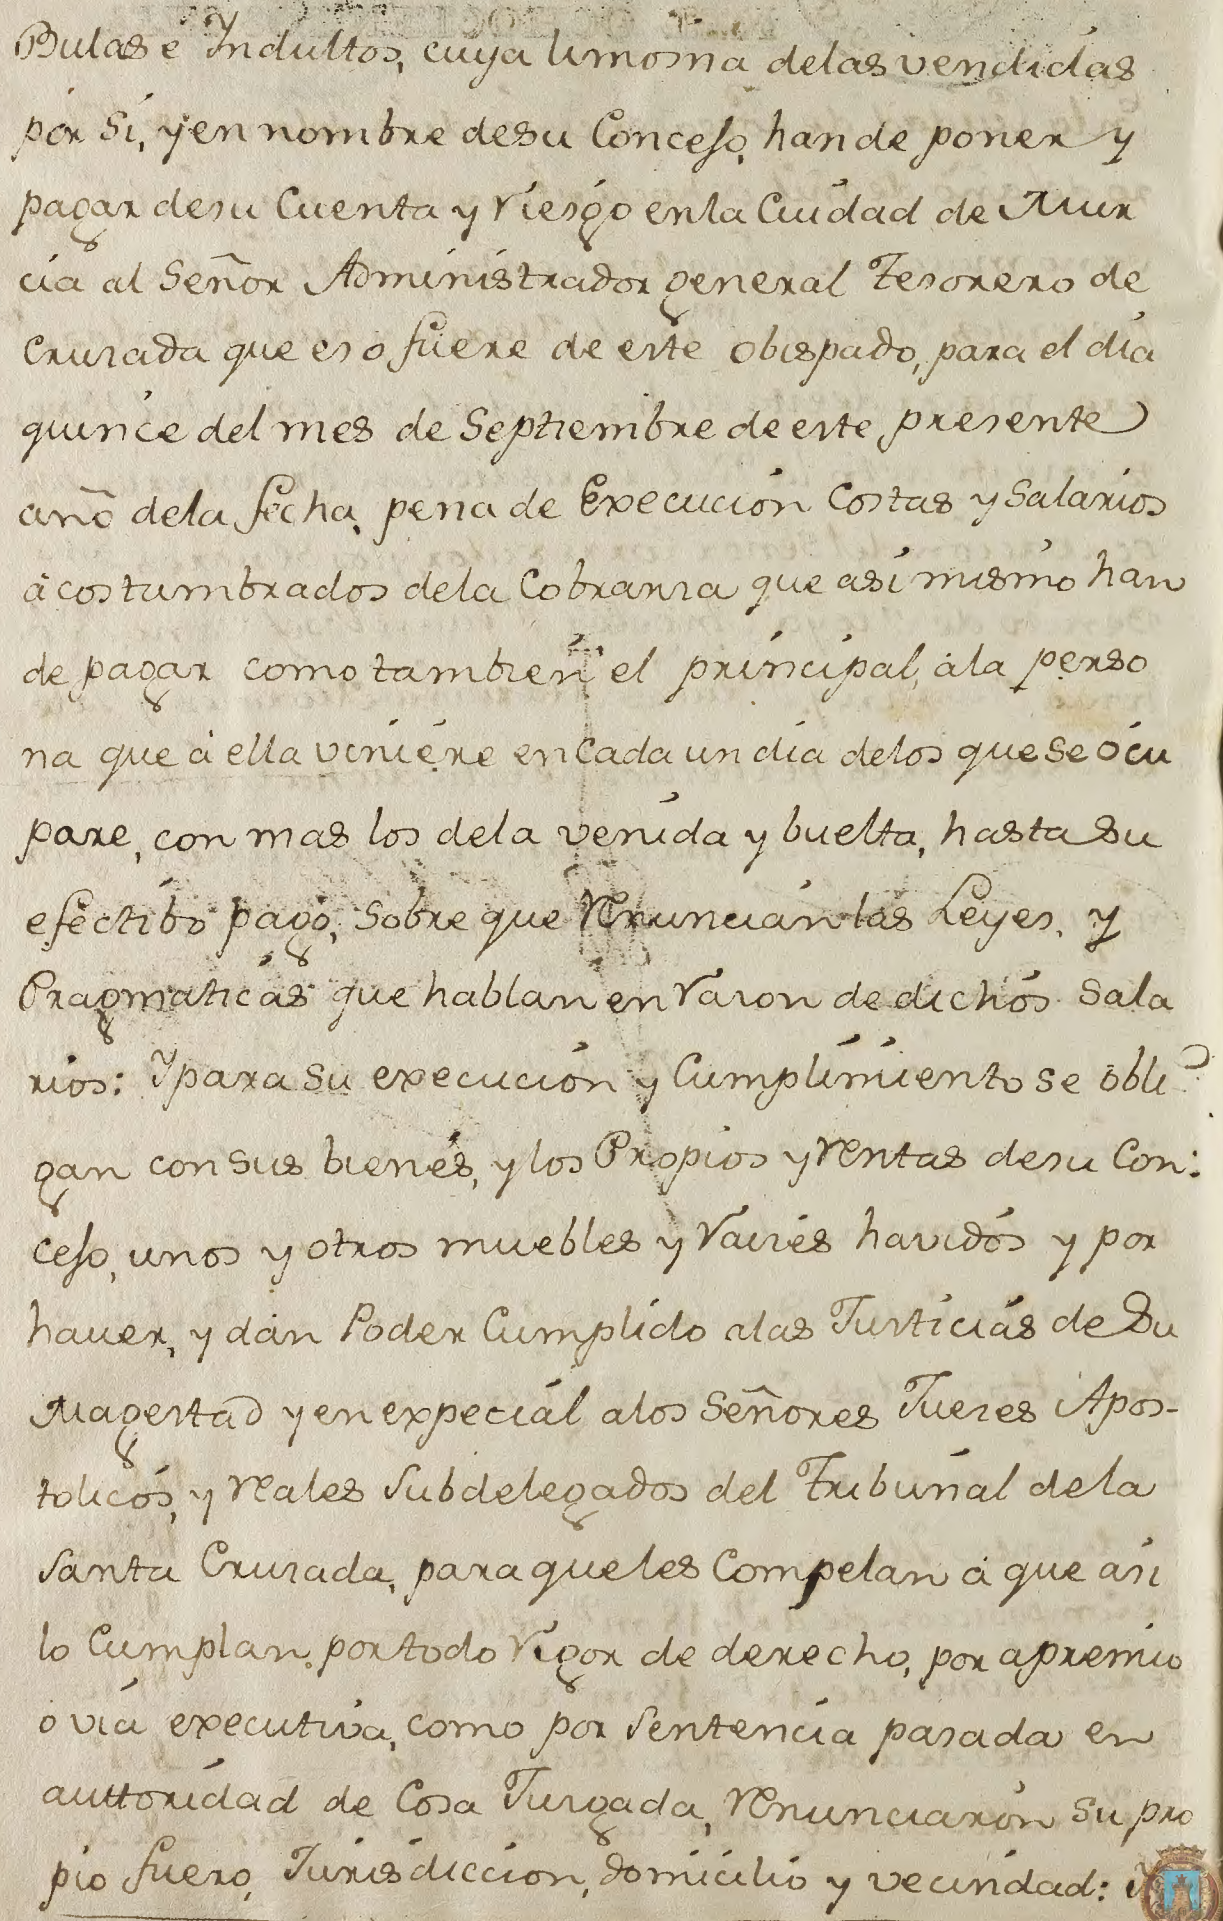 Bulas è Yndultos, cuya limosna delas vendidas
por Si, y en nombre desu Concejo, hande poner y
pagar desu Cuenta y riesgo enla Ciudad de Mur
cia al Señor Administrador general Tesorero de
Cruzada que es o fuere de este obispado, para el dia
quince del mes de Septiembre de este presente
año dela fecha, pena de Execucion Costas y Salarios
acostumbrados dela Cobranza que asi mismo han
de pagar como tambien el principal, ala perso
na que à ella viniere en Cada un dia delos que se ocu
pare, con mas los dela venida y buelta, hasta su
efectibo pago, Sobre que renuncian las Leyes, y
Pragmaticas que hablan en razon de dichos Sala
rios: Y para su execucion y Cumplimiento se obli
gan con sus bienes, y los Propios y rentas desu Con:
cejo, unos y otros muebles y raices havidos y por
haver, y dan Poder Cumplido alas Justicias de Su
Magestad y en expecial alos Señores Jueces Apos-
tolicos, y reales Subdelegados del Tribunal dela
Santa Cruzada, para que les Compelan à que asi
lo Cumplan por todo rigor de derecho, por apremio
ò via executiva, como por Sentencia pasada en
auttoridad de Cosa Juzgada, renunciaron su pro
pio fuero, Jurisdiccion, domicilio y vecindad: